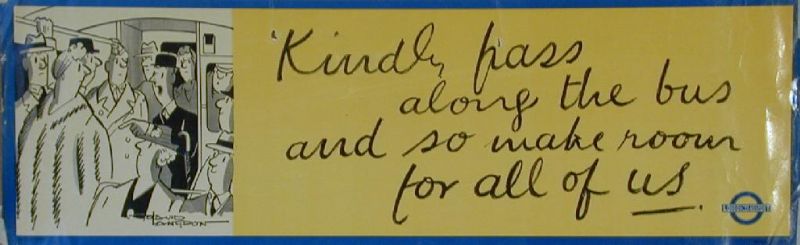 'Kindly pass
along the bus
and so make room
for all of us.
DAVID
LANGDON